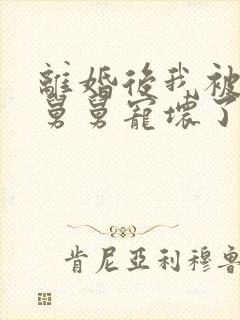 離婚後我被
舅舅寵壞了
肯尼亞利穆魯